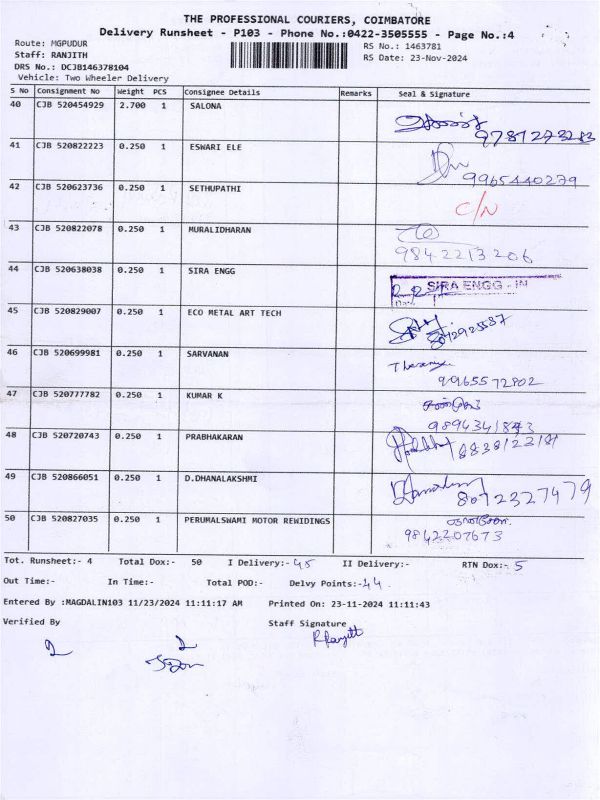 THE PROFESSIONAL COURIERS, COIMBATORE
Delivery Runsheet - P103 - Phone No.:0422-3505555 - Page No.:4
Route: MGPUDUR
Staff: RANJITH
DRS No.: DCJB146378104
Vehicle: Two Wheeler Delivery
RS No.: 1463781
RS Date: 23-Nov-2024
S No Consignment No Weight PCS Consignee Details Remarks Seal & Signature
40 CJB 520454929 2.700 1 SALONA
41 CJB 520822223 0.250 1 ESWARI ELE
9965440279
42 CJB 520623736 0.250 1 SETHUPATHI C/N
43 CJB 520822078 0.250 1 MURALIDHARAN
9842213206
44 CJB 520638038 0.250 1 SIRA ENGG SIRA ENGG - IN
45 CJB 520829007 0.250 1 ECO METAL ART TECH
46 CJB 520699981 0.250 1 SARVANAN
9965572802
47 CJB 520777782 0.250 1 KUMAR K
48 CJB 520720743 0.250 1 PRABHAKARAN
49 CJB 520866051 0.250 1 D.DHANALAKSHMI
8072327479
50 CJB 520827035 0.250 1 PERUMALSWAMI MOTOR REWIDINGS
9842207673
Tot. Runsheet:- 4 Total Dox:- 50 I Delivery:- 45 II Delivery:- RTN Dox:- 5
Out Time:- In Time:- Total POD:- Delvy Points:- 44
Entered By :MAGDALIN103 11/23/2024 11:11:17 AM Printed On: 23-11-2024 11:11:43
Verified By Staff Signature